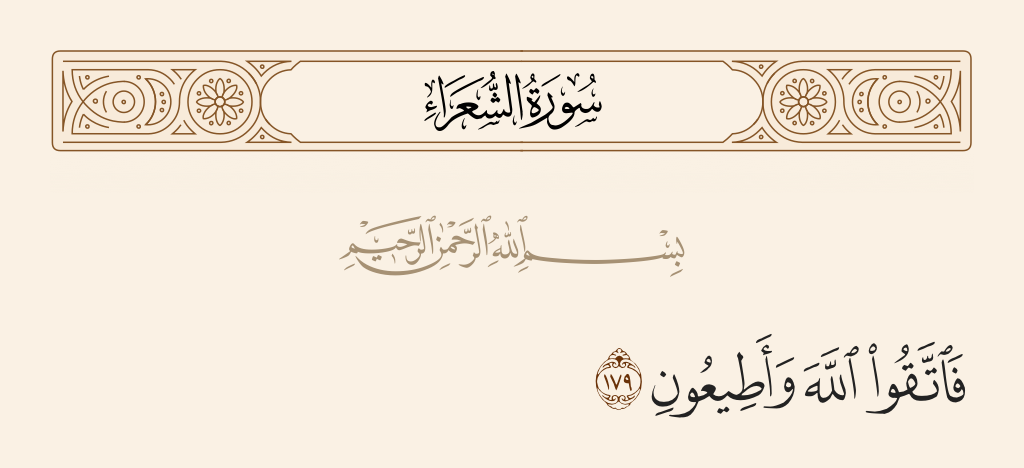 سُورَةُ الشُّعَرَاءِ
بِسْمِ ٱللَّهِ ٱلرَّحْمَٰنِ ٱلرَّحِيمِ
فَٱتَّقُوا۟ ٱللَّهَ وَأَطِيعُونِ ١٧٩